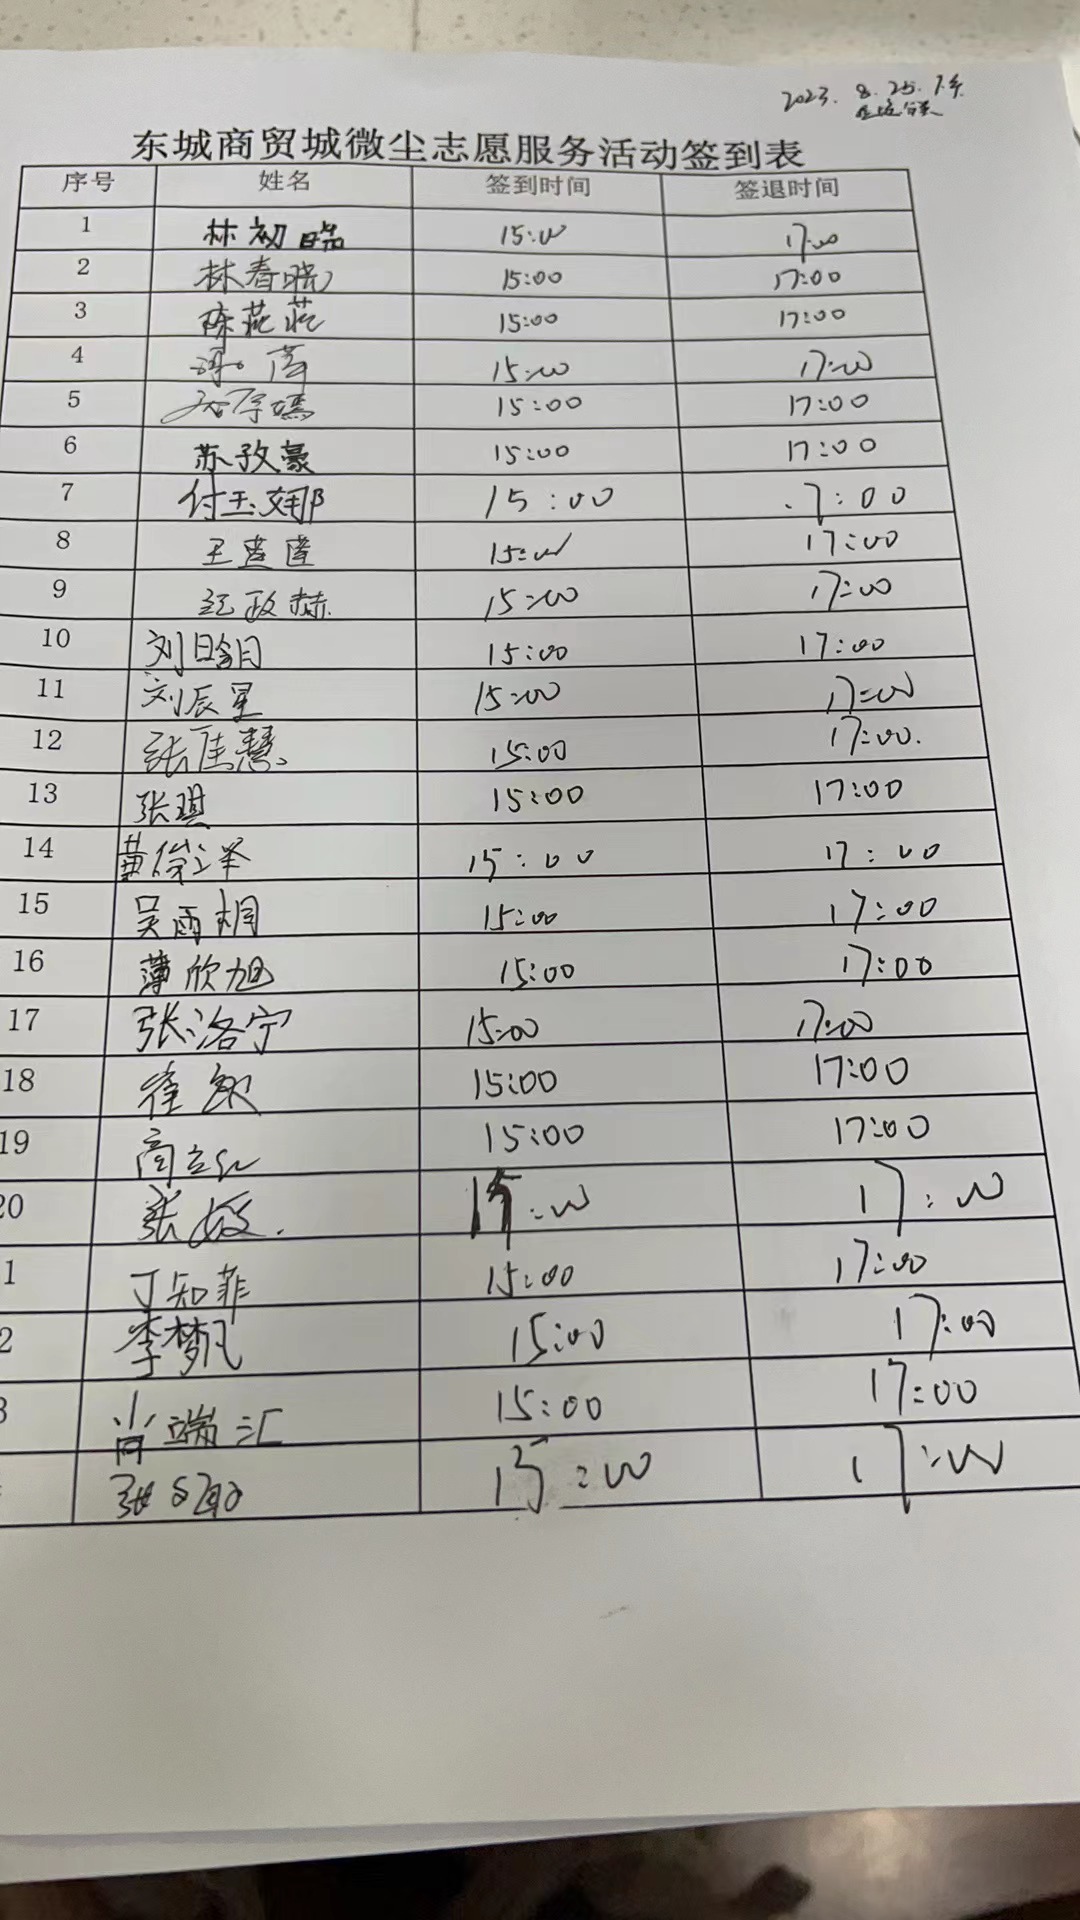 2023. 8. 25. 下午
东城商贸城微尘志愿服务活动签到表
序号 姓名 签到时间 签退时间
1 林初皓 15:00 17:00
2 林春晓 15:00 17:00
3 陈燕燕 15:00 17:00
4 15:00 17:00
5 15:00 17:00
6 苏孜豪 15:00 17:00
7 付玉娜 15:00 17:00
8 王萱萱 15:00 17:00
9 政赫 15:00 17:00
10 刘晗月 15:00 17:00
11 刘辰星 15:00 17:00
12 张佳慧 15:00 17:00.
13 张琪 15:00 17:00
14 黄 泽 15:00 17:00
15 吴雨桐 15:00 17:00
16 薄欣旭 15:00 17:00
17 张洛宁 15:00 17:00
18 15:00 17:00
19 商立红 15:00 17:00
20 张 15:00 17:00
1 丁知菲 15:00 17:00
2 李梦凡 15:00 17:00
3 肖端汇 15:00 17:00
张 15:00 17:00